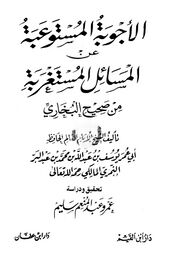 الأجوبة المستوعبة
عن
المسائل المستغربة
من صحيح البخاري
تأليف الشيخ الإمام العالم الحافظ
أبي عمر يوسف بن عبد الله بن محمد بن عبد البر
النمري المالكي رحمه الله تعالى
تحقيق ودراسة
عمرو عبد المنعم سليم
دار ابن القيم
دار ابن عفان